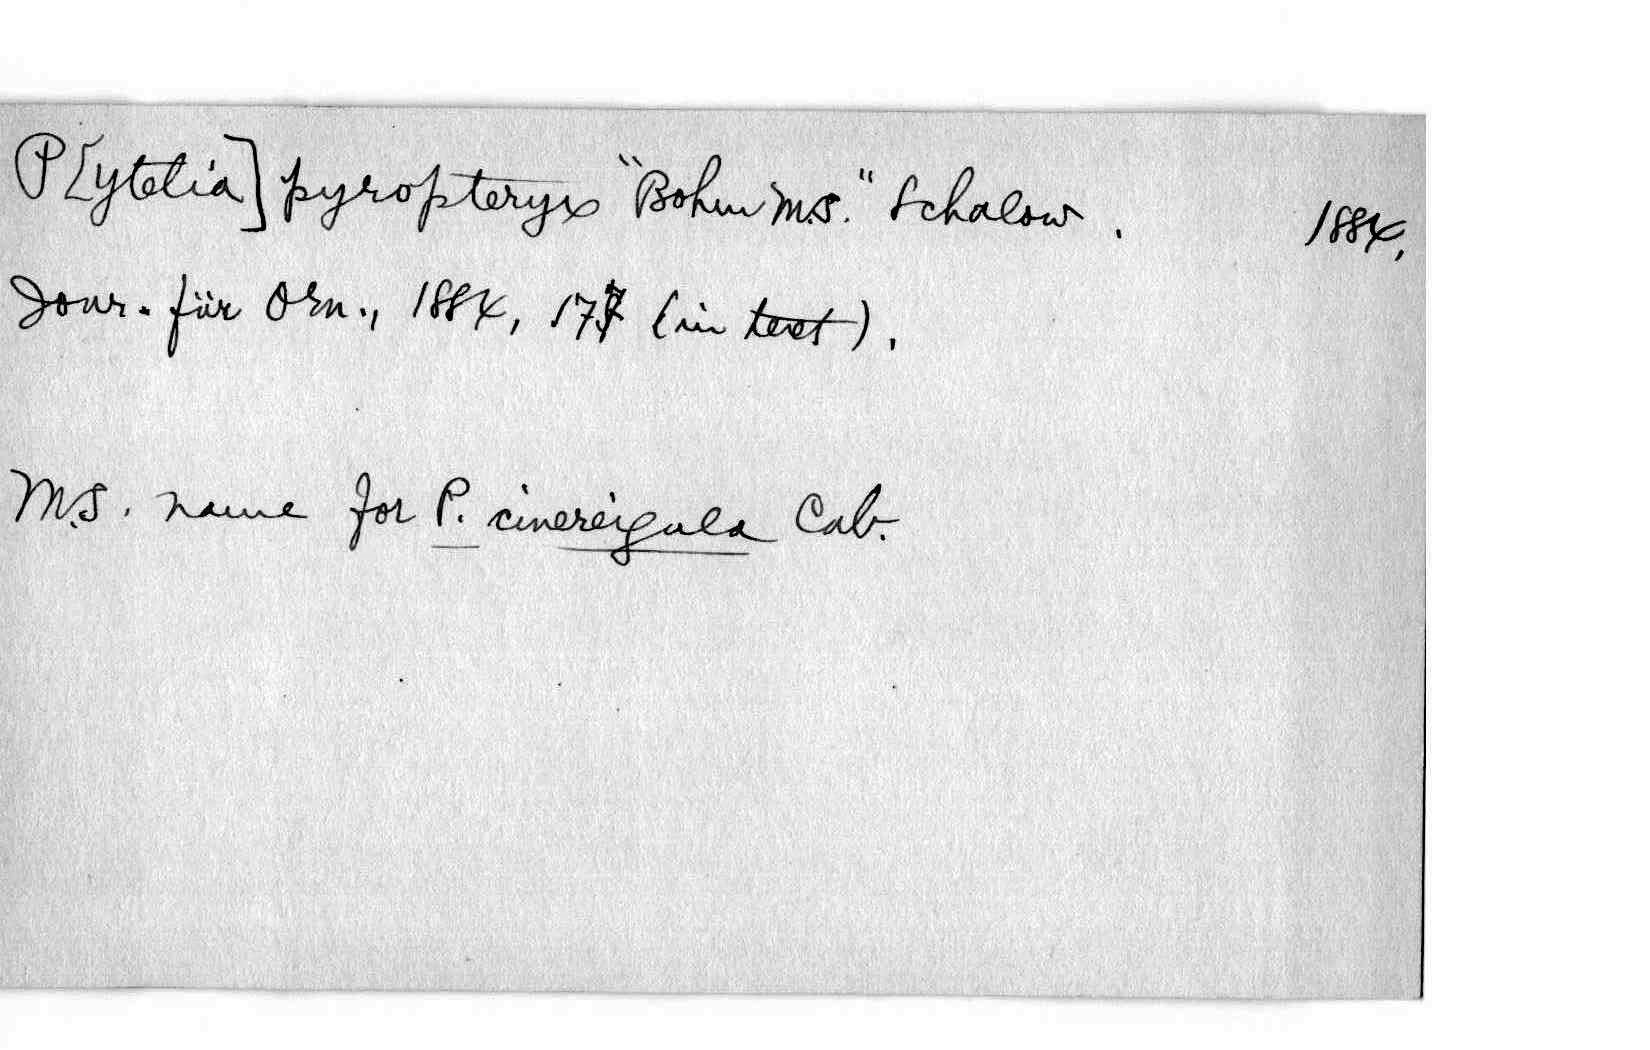 P[ytelia] pyropteryx "Bohm M.S." Schalow. 1884.
Jour. für Orn., 1884, (in text).
M.S. name for P. cinereigula Cab.